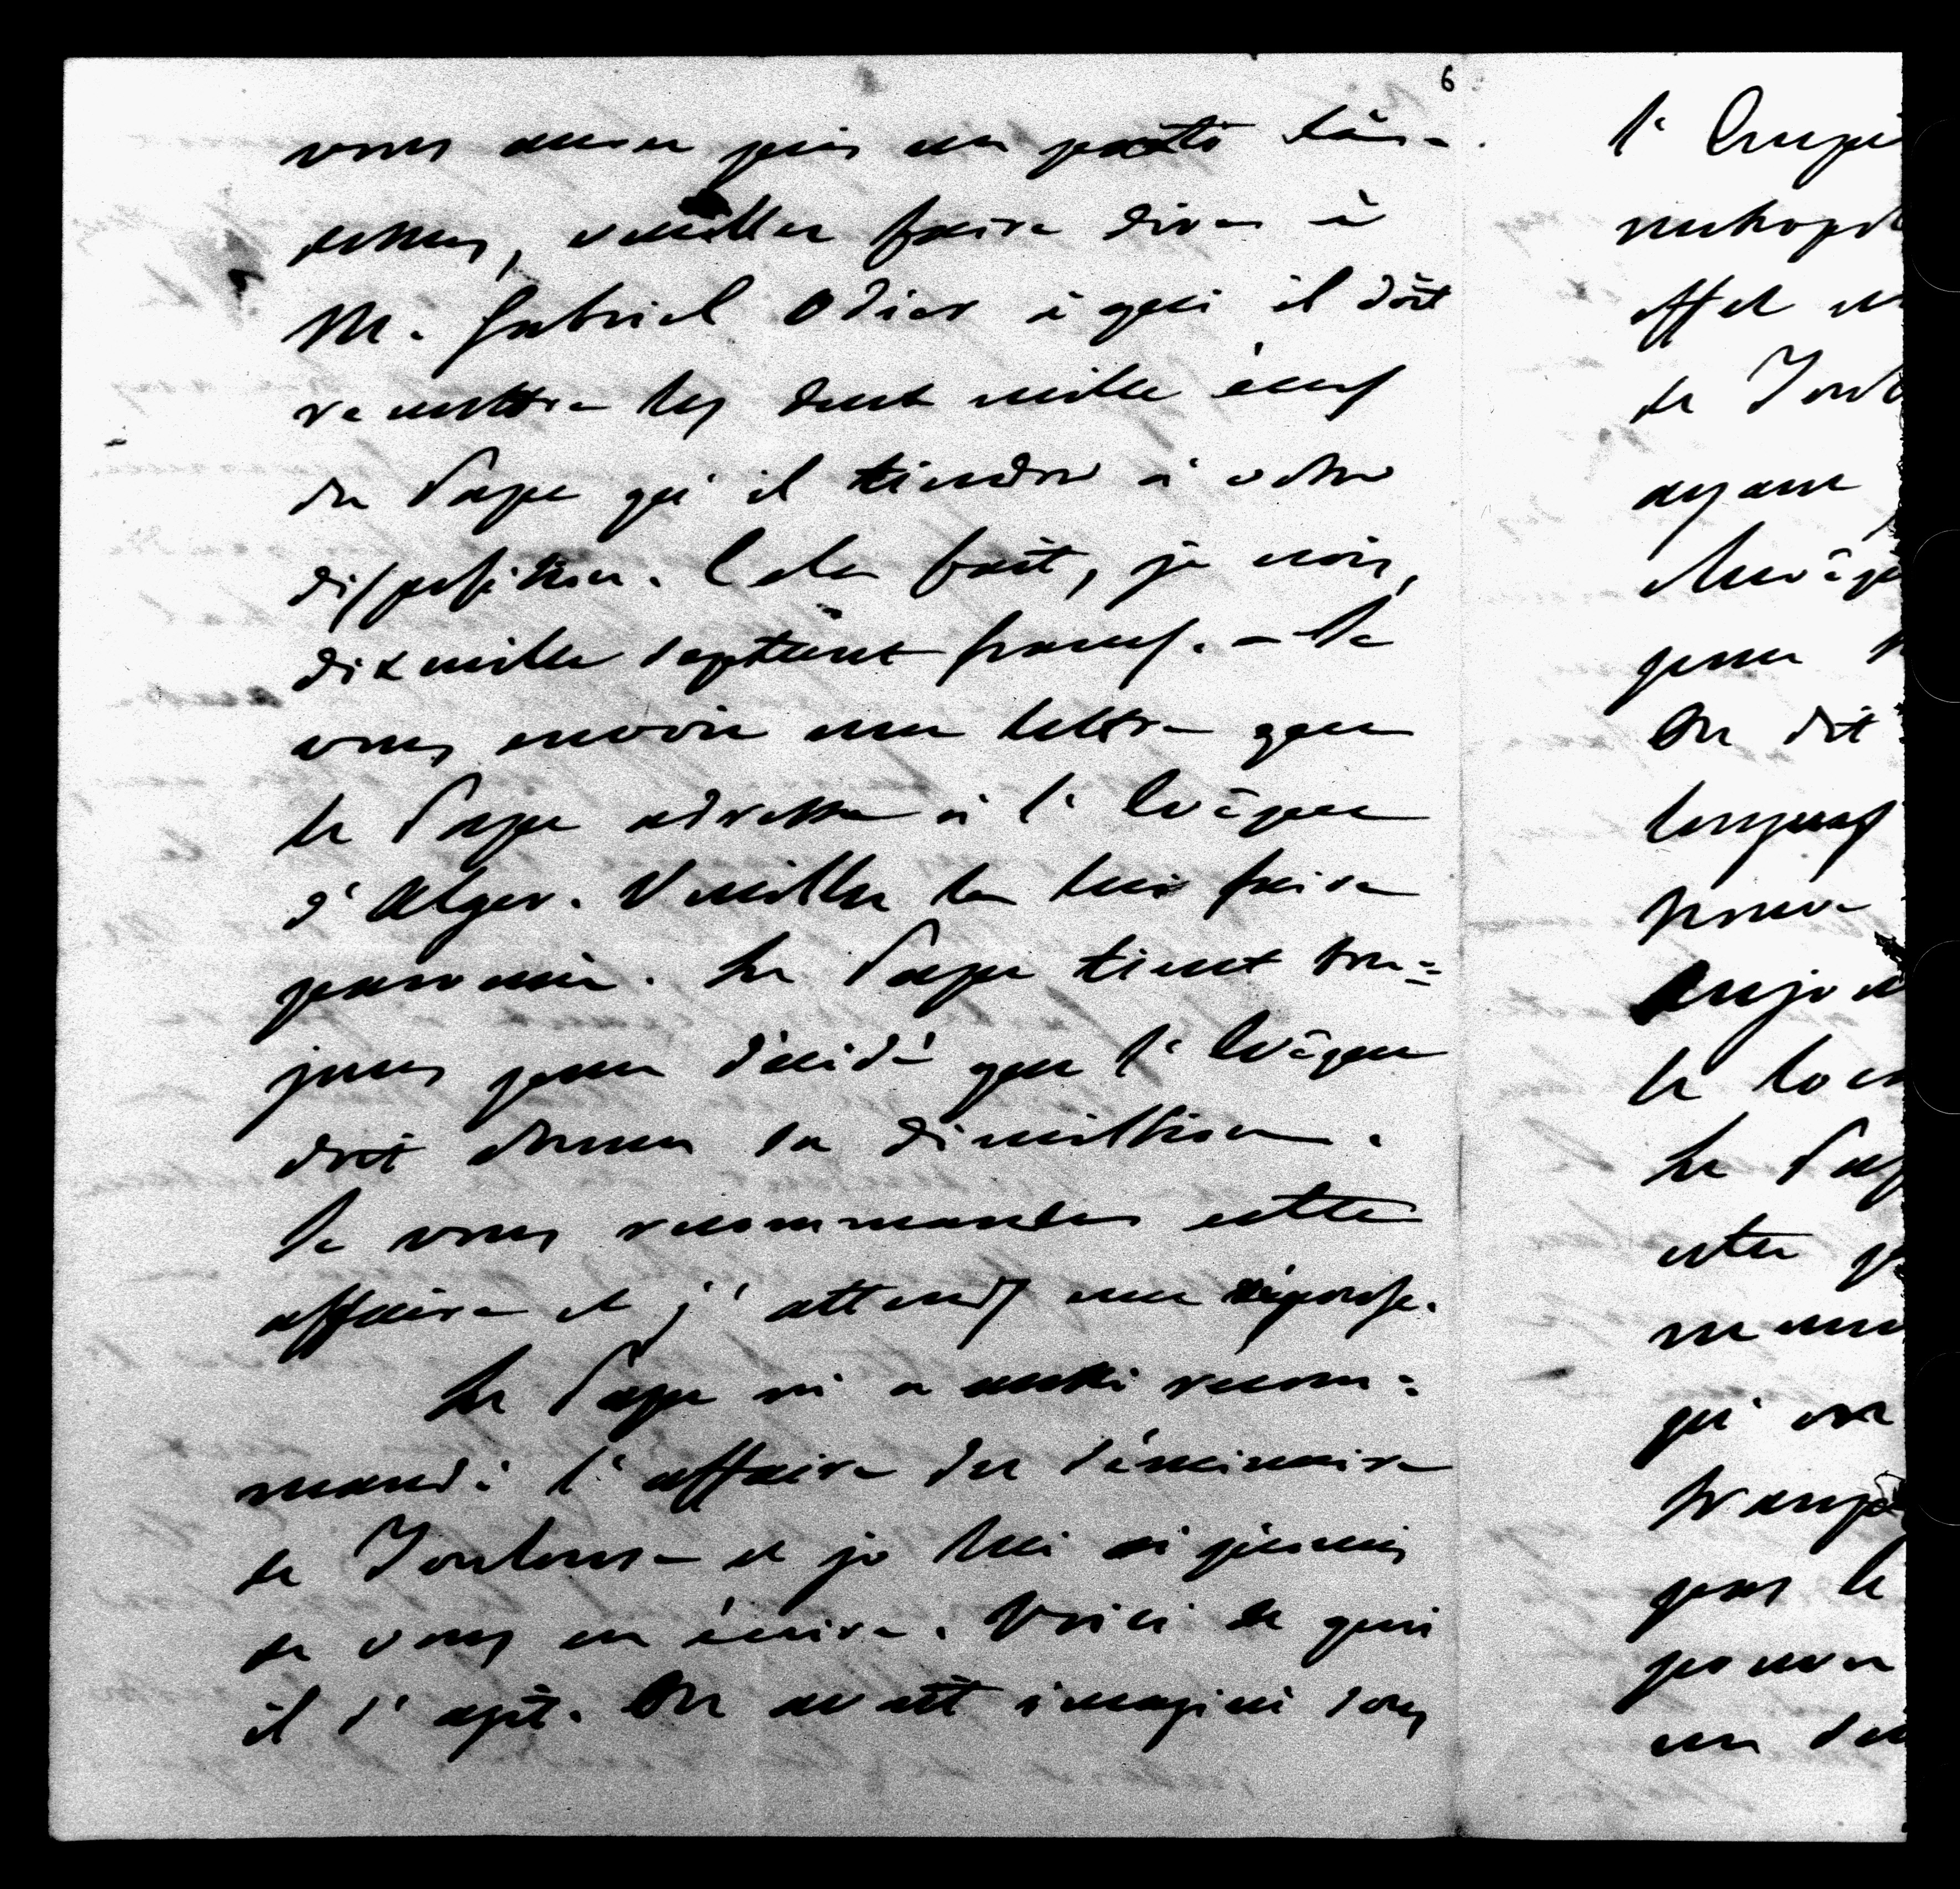 6
vous aurez pris un parti làs-
dessus, veuillez faire dire à
M. Gabriel Odier à qui il doit
remettre les deux mille écus
du Pape qu'il tiendra à votre
disposition. Cela fait, je crois,
dix mille septcent francs. – Je
vous envoie une lettre que
le Pape adresse à l'Evêque
d'Alger. Veuillez la lui faire
parvenir. Le Pape tient tou=
jours pour décidé que l'Evêque
doit donner sa démission.
Je vous recommande cette
affaire et j'attends une réponse.
Le Pape m'a aussi recom=
mandé l'affaire du Séminaire
de Toulouse et je lui ai promis
de vous en écrire. Voici de quoi
il s'agit. On avait imaginé sous
l'Empi
métropol
effet
de Toul
ayant
pour
On dit
longues
le
Le Pap
cette
qu'on
pas le
pouvoir
un